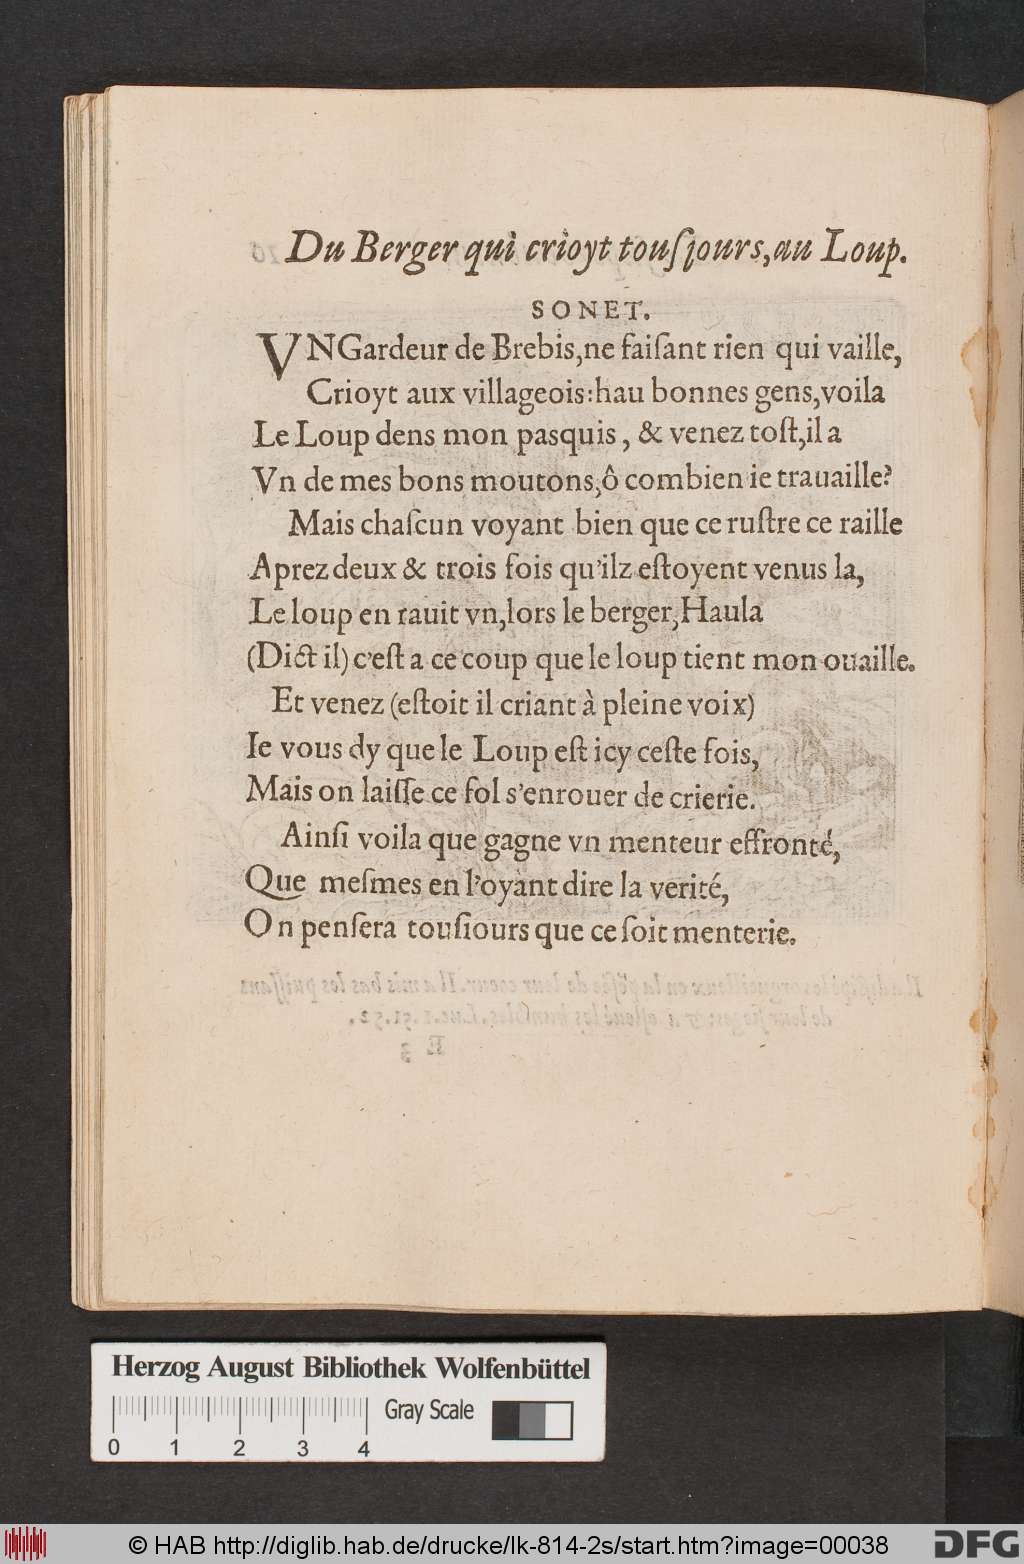 Du Berger qui crioyt touſjours, au Loup.
SONET.
VN Gardeur de Brebis, ne faiſant rien qui vaille,
Crioyt aux villageois: hau bonnes gens, voila
Le Loup dens mon pasquis, & venez toſt, il a
Vn de mes bons moutons, ô combien ie trauaille?
Mais chaſcun voyant bien que ce ruſtre ce raille
Aprez deux & trois fois qu'ilz eſtoyent venus la,
Le loup en rauit vn, lors le berger, Haula
(Dict il) c'eſt a ce coup que le loup tient mon ouaille.
Et venez (eſtoit il criant à pleine voix)
Ie vous dy que le Loup eſt icy ceſte fois,
Mais on laiſſe ce fol s'enrouer de crierie.
Ainſi voila que gagne vn menteur effronté,
Que meſmes en l'oyant dire la verité,
On penſera touſiours que ce ſoit menterie.
Herzog August Bibliothek Wolfenbüttel
Gray Scale
0 1 2 3 4
© HAB http://diglib.hab.de/drucke/lk-814-2s/start.htm?image=00038
DFG